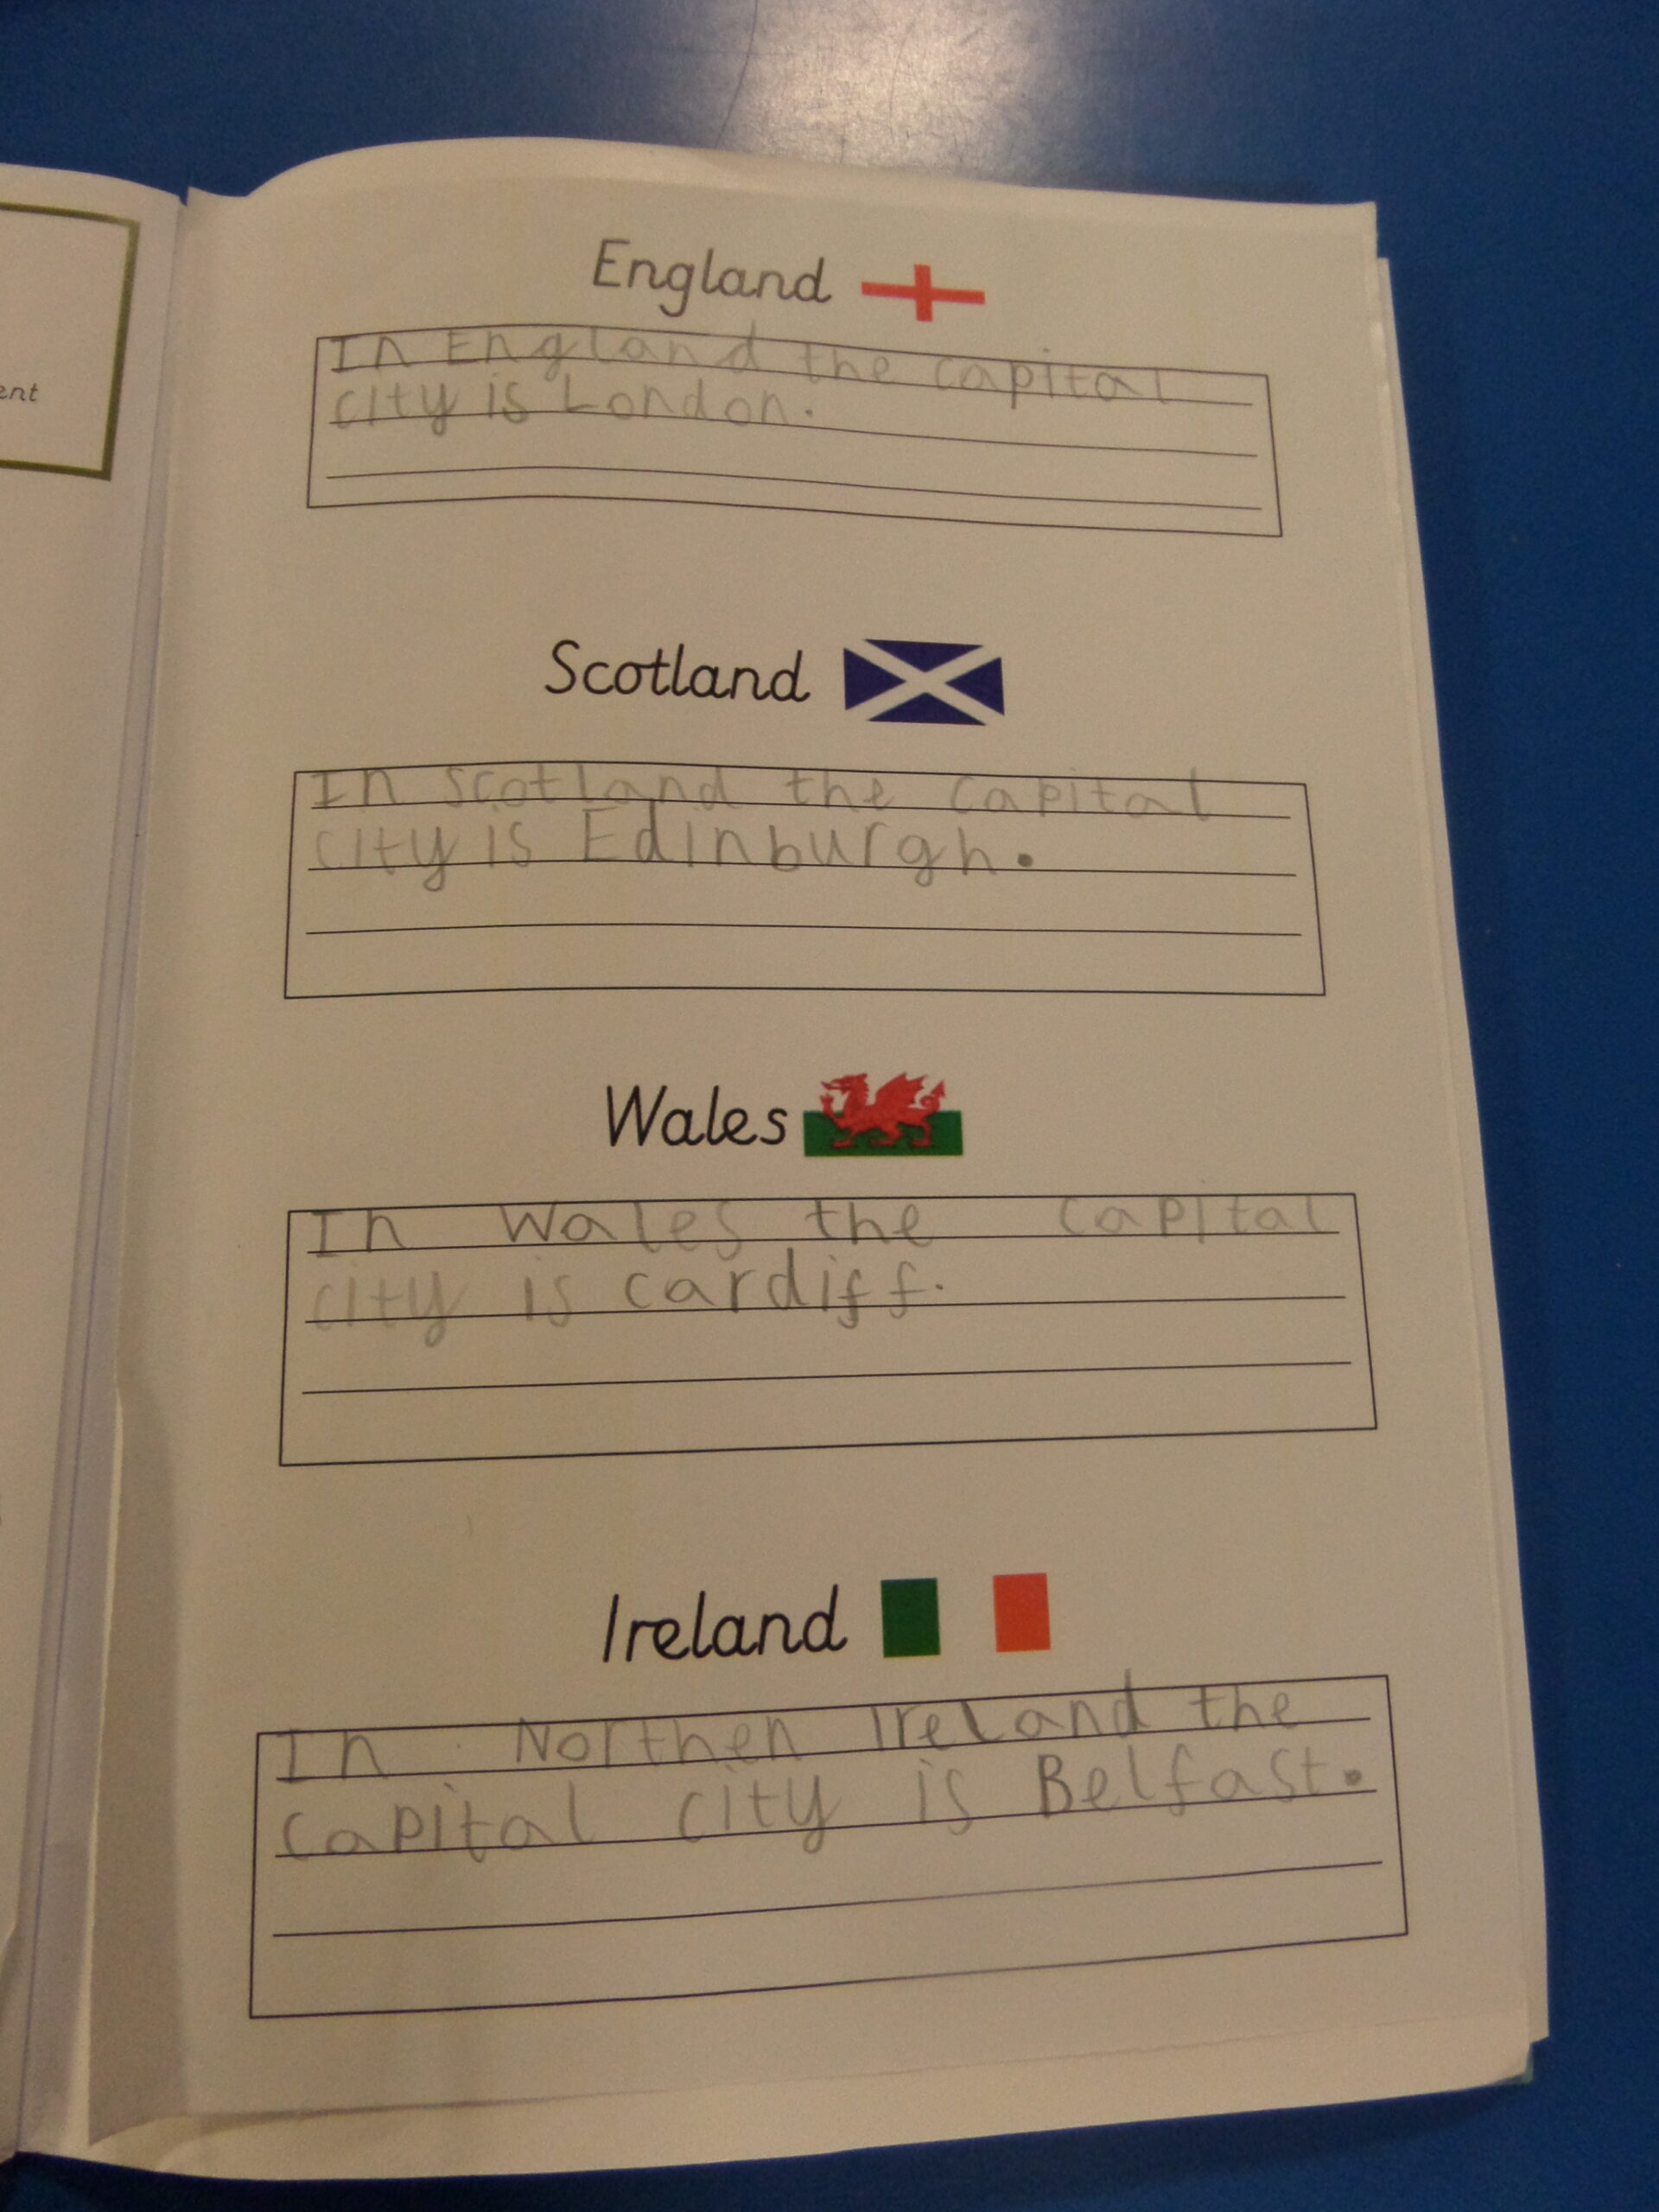 ent
England
In England the capital
city is London.
Scotland
In scotland the capital
city is Edinburgh.
Wales
In Wales the capital
city is cardiff.
Ireland
In Northen Ireland the
capital city is Belfast.